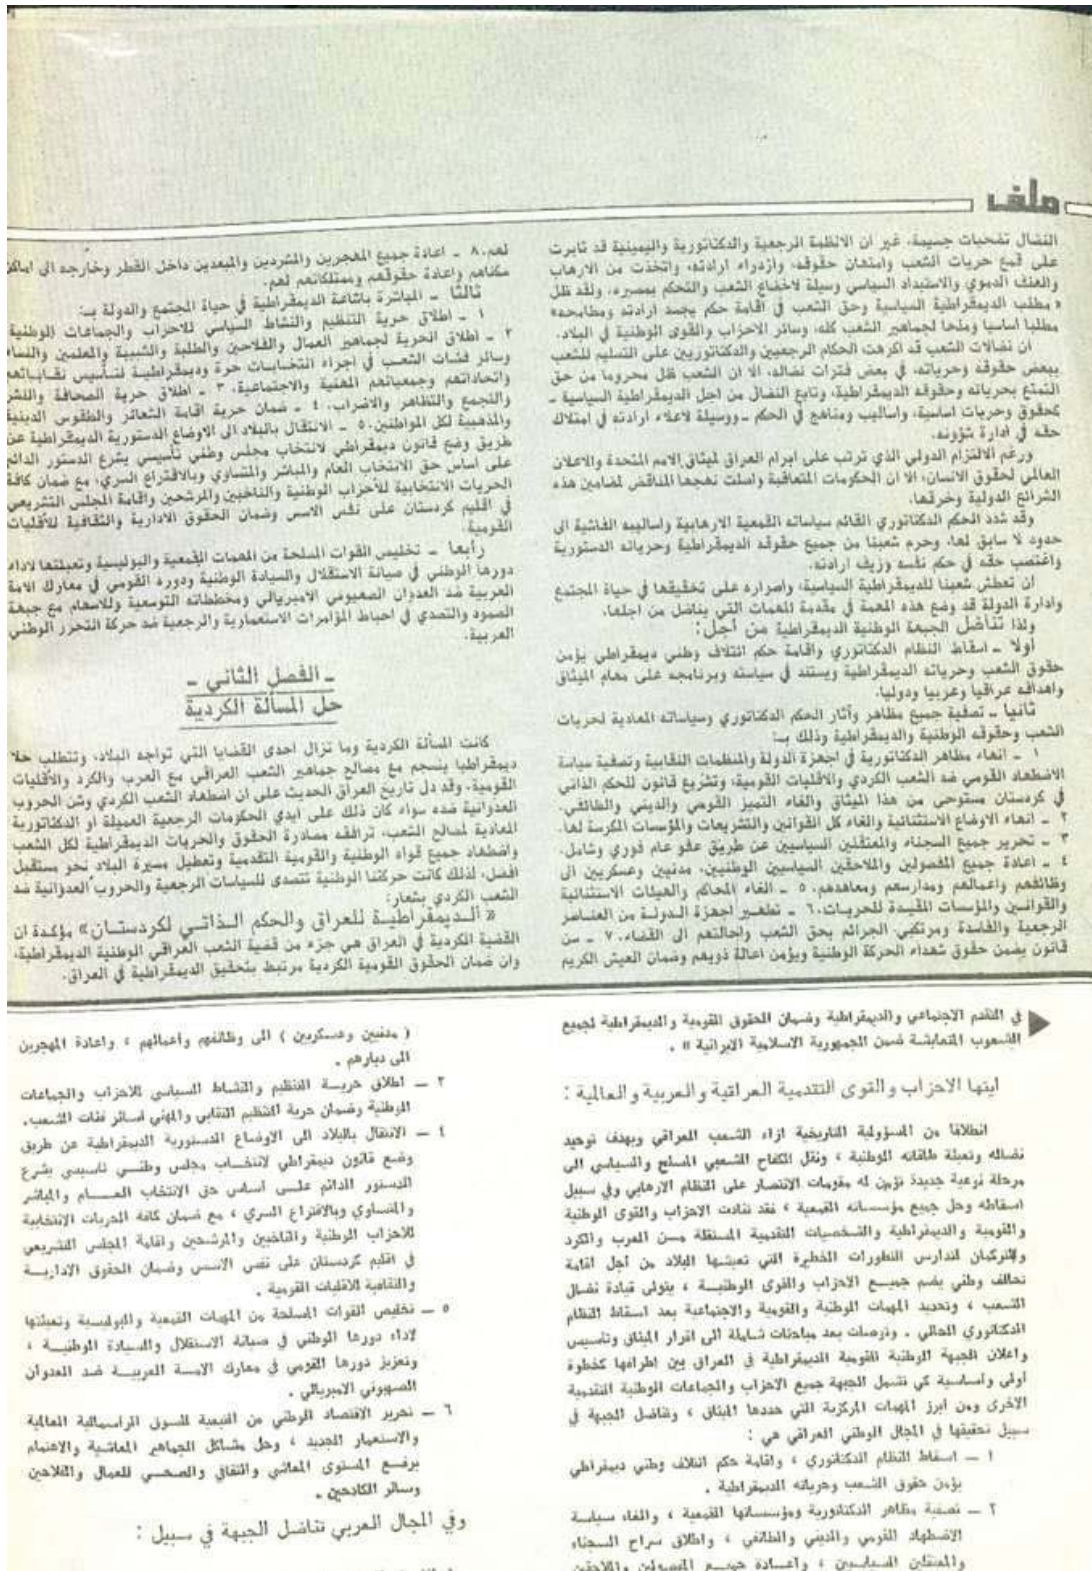 ملف
النضال تضحيات جسيمة، غير ان الانظمة الرجعية والدكتاتورية واليمينية قد ثابرت
على قمع حريات الشعب وامتهان حقوقه، وازدراء ارادته، واتخذت من الارهاب
والعنف الدموي والاستبداد السياسي وسيلة لاخضاع الشعب والتحكم بمصيره. ولقد ظل
«مطلب الديمقراطية السياسية وحق الشعب في اقامة حكم يجسد ارادته ومطامحه»
مطلبا اساسيا وملحا لجماهير الشعب كله، وسائر الاحزاب والقوى الوطنية في البلاد.
ان نضالات الشعب قد اكرهت الحكام الرجعيين والدكتاتوريين على التسليم للشعب
ببعض حقوقه وحرياته، في بعض فترات نضاله، الا ان الشعب ظل محروما من حق
التمتع بحرياته وحقوقه الديمقراطية، وتابع النضال من اجل الديمقراطية السياسية ـ
كحقوق وحريات اساسية، واساليب ومناهج في الحكم ـ ووسيلة لاعلاء ارادته في امتلاك
حقه في ادارة شؤونه.
ورغم الالتزام الدولي الذي ترتب على ابرام العراق لميثاق الامم المتحدة والاعلان
العالمي لحقوق الانسان، الا ان الحكومات المتعاقبة واصلت نهجها المناقض لمضامين هذه
الشرائع الدولية وخرقها.
وقد شدد الحكم الدكتاتوري القائم سياساته القمعية الارهابية واساليبه الفاشية الى
حدود لا سابق لها، وحرم شعبنا من جميع حقوقه الديمقراطية وحرياته الدستورية
واغتصب حقه في حكم نفسه وزيف ارادته.
ان تعطش شعبنا للديمقراطية السياسية، واصراره على تحقيقها في حياة المجتمع
وادارة الدولة قد وضع هذه المهمة في مقدمة المهمات التي يناضل من اجلها.
ولذا تناضل الجبهة الوطنية الديمقراطية من أجل:
أولا ـ اسقاط النظام الدكتاتوري واقامة حكم ائتلاف وطني ديمقراطي يؤمن
حقوق الشعب وحرياته الديمقراطية ويستند في سياسته وبرنامجه على مهام الميثاق
واهدافه عراقيا وعربيا ودوليا.
ثانيا ـ تصفية جميع مظاهر وآثار الحكم الدكتاتوري وسياساته المعادية لحريات
الشعب وحقوقه الوطنية والديمقراطية وذلك بـ:
١ ـ انهاء مظاهر الدكتاتورية في اجهزة الدولة والمنظمات النقابية وتصفية سياسة
الاضطهاد القومي ضد الشعب الكردي والاقليات القومية، وتشريع قانون للحكم الذاتي
في كردستان مستوحى من هذا الميثاق والغاء التميز القومي والديني والطائفي.
٢ ـ انهاء الاوضاع الاستثنائية والغاء كل القوانين والتشريعات والمؤسسات المكرسة لها.
٣ ـ تحرير جميع السجناء والمعتقلين السياسيين عن طريق عفو عام فوري وشامل.
٤ ـ اعادة جميع المفصولين والملاحقين السياسيين الوطنيين، مدنيين وعسكريين الى
وظائفهم واعمالهم ومدارسهم ومعاهدهم. ٥ ـ الغاء المحاكم والهيئات الاستثنائية
والقوانين والمؤسسات المقيدة للحريات. ٦ ـ تطهير اجهزة الدولة من العناصر
الرجعية والفاسدة ومرتكبي الجرائم بحق الشعب واحالتهم الى القضاء. ٧ ـ سن
قانون يضمن حقوق شهداء الحركة الوطنية ويؤمن اعالة ذويهم وضمان العيش الكريم
لهم. ٨ ـ اعادة جميع المهجرين والمشردين والمبعدين داخل القطر وخارجه الى اماكن
سكناهم واعادة حقوقهم وممتلكاتهم لهم.
ثالثا ـ المباشرة باشاعة الديمقراطية في حياة المجتمع والدولة بـ:
١ ـ اطلاق حرية التنظيم والنشاط السياسي للاحزاب والجماعات الوطنية
٢ ـ اطلاق الحرية لجماهير العمال والفلاحين والطلبة والشبيبة والمعلمين والنساء
وسائر فئات الشعب في اجراء انتخابات حرة وديمقراطية لتأسيس نقاباتهم
واتحاداتهم وجمعياتهم المهنية والاجتماعية. ٣ ـ اطلاق حرية الصحافة والنشر
والتجمع والتظاهر والاضراب. ٤ ـ ضمان حرية اقامة الشعائر والطقوس الدينية
والمذهبية لكل المواطنين. ٥ ـ الانتقال بالبلاد الى الاوضاع الدستورية الديمقراطية عن
طريق وضع قانون ديمقراطي لانتخاب مجلس وطني تأسيسي يشرع الدستور الدائم
على اساس حق الانتخاب العام والمباشر والمتساوي وبالاقتراع السري، مع ضمان كافة
الحريات الانتخابية للأحزاب الوطنية والناخبين والمرشحين واقامة المجلس التشريعي
في اقليم كردستان على نفس الاسس وضمان الحقوق الادارية والثقافية للأقليات
القومية.
رابعا ـ تخليص القوات المسلحة من المهمات القمعية والبوليسية وتعبئتها لاداء
دورها الوطني في صيانة الاستقلال والسيادة الوطنية ودوره القومي في معارك الامة
العربية ضد العدوان الصهيوني الامبريالي ومخططاته التوسعية وللاسهام مع جبهة
الصمود والتصدي في احباط المؤامرات الاستعمارية والرجعية ضد حركة التحرر الوطني
العربية.
ـ الفصل الثاني ـ
حل المسألة الكردية
كانت المسألة الكردية وما تزال احدى القضايا التي تواجه البلاد، وتتطلب حلا
ديمقراطيا ينسجم مع مصالح جماهير الشعب العراقي مع العرب والكرد والأقليات
القومية. وقد دل تاريخ العراق الحديث على ان اضطهاد الشعب الكردي وشن الحروب
العدوانية ضده سواء كان ذلك على ايدي الحكومات الرجعية العميلة او الدكتاتورية
المعادية لمصالح الشعب، ترافقه مصادرة الحقوق والحريات الديمقراطية لكل الشعب
واضطهاد جميع قواه الوطنية والقومية التقدمية وتعطيل مسيرة البلاد نحو مستقبل
افضل. لذلك كانت حركتنا الوطنية تتصدى للسياسات الرجعية والحروب العدوانية ضد
الشعب الكردي بشعار:
«الديمقراطية للعراق والحكم الذاتي لكردستان» مؤكدة ان
القضية الكردية في العراق هي جزء من قضية الشعب العراقي الوطنية الديمقراطية،
وان ضمان الحقوق القومية الكردية مرتبط بتحقيق الديمقراطية في العراق.
في التقدم الاجتماعي والديمقراطية وضمان الحقوق القومية والديمقراطية لجميع
الشعوب المتعايشة ضمن الجمهورية الاسلامية الايرانية » .
ايتها الاحزاب والقوى التقدمية العراقية والعربية والعالمية :
انطلاقا من المسؤولية التاريخية ازاء الشعب العراقي وبهدف توحيد
نضاله وتعبئة طاقاته الوطنية ، ونقل الكفاح الشعبي المسلح والسياسي الى
مرحلة نوعية جديدة تؤمن له مقومات الانتصار على النظام الارهابي وفي سبيل
اسقاطه وحل جميع مؤسساته القمعية ، فقد تنادت الاحزاب والقوى الوطنية
والقومية والديمقراطية والشخصيات التقدمية المستقلة من العرب والكرد
والتركمان لتدارس التطورات الخطيرة التي تعيشها البلاد من أجل اقامة
تحالف وطني يضم جميع الاحزاب والقوى الوطنية ، يتولى قيادة نضال
الشعب ، وتحديد المهمات الوطنية والقومية والاجتماعية بعد اسقاط النظام
الدكتاتوري الحالي . وتوصلت بعد مباحثات شاملة الى اقرار الميثاق وتأسيس
واعلان الجبهة الوطنية القومية الديمقراطية في العراق بين اطرافها كخطوة
أولى واساسية كي تشمل الجبهة جميع الاحزاب والجماعات الوطنية التقدمية
الاخرى ومن ابرز المهمات المركزية التي حددها الميثاق ، وتناضل الجبهة في
سبيل تحقيقها في المجال الوطني العراقي هي :
١ ـ اسقاط النظام الدكتاتوري ، واقامة حكم ائتلاف وطني ديمقراطي
يؤمن حقوق الشعب وحرياته الديمقراطية .
٢ ـ تصفية مظاهر الدكتاتورية ومؤسساتها القمعية ، والغاء سياسة
الاضطهاد القومي والديني والطائفي ، واطلاق سراح السجناء
والمعتقلين السياسيين ، واعادة جميع المفصولين والملاحقين
( مدنيين وعسكريين ) الى وظائفهم وأعمالهم ، واعادة المهجرين
الى ديارهم .
٣ ـ اطلاق حرية التنظيم والنشاط السياسي للاحزاب والجماعات
الوطنية وضمان حرية التنظيم النقابي والمهني لسائر فئات الشعب.
٤ ـ الانتقال بالبلاد الى الاوضاع الدستورية الديمقراطية عن طريق
وضع قانون ديمقراطي لانتخاب مجلس وطني تأسيسي يشرع
الدستور الدائم على اساس حق الانتخاب العام والمباشر
والمتساوي وبالاقتراع السري ، مع ضمان كافة الحريات الانتخابية
للاحزاب الوطنية والناخبين والمرشحين واقامة المجلس التشريعي
في اقليم كردستان على نفس الاسس وضمان الحقوق الادارية
والثقافية للاقليات القومية .
٥ ـ تخليص القوات المسلحة من المهمات القمعية والبوليسية وتعبئتها
لاداء دورها الوطني في صيانة الاستقلال والسيادة الوطنية ،
وتعزيز دورها القومي في معارك الامة العربية ضد العدوان
الصهيوني الامبريالي .
٦ ـ تحرير الاقتصاد الوطني من التبعية للسوق الراسمالية العالمية
والاستعمار الجديد ، وحل مشاكل الجماهير المعاشية والاهتمام
برفع المستوى المعاشي والثقافي والصحي للعمال والفلاحين
وسائر الكادحين .
وفي المجال العربي تناضل الجبهة في سبيل :